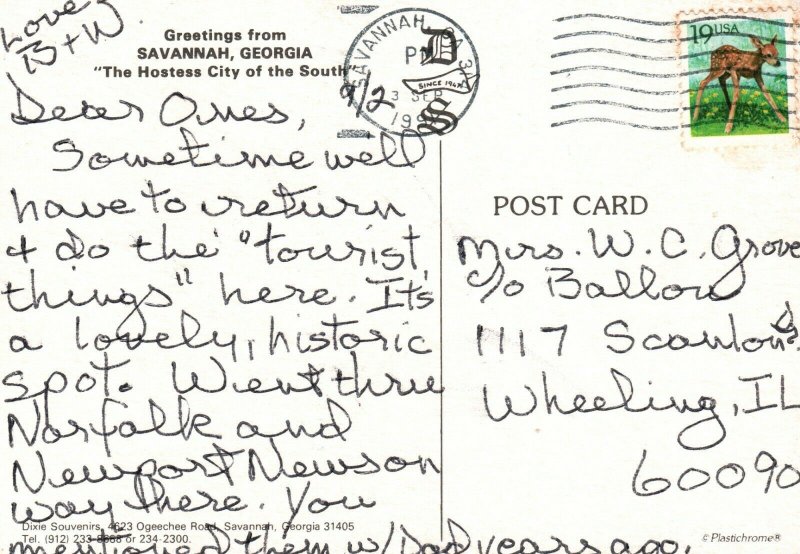 Love,
B + W
Greetings from
SAVANNAH, GEORGIA
"The Hostess City of the South"
SAVANNAH, GA
PM
3 SEP
SINCE 1947
D
S
19 USA
9/2
Dear Ones,
Sometime well
have to return
+ do the "tourist
things" here. It's
a lovely, historic
spot. Went thru
Norfolk and
Newport News on
way there. You
mentioned them w/Dad years ago.
Dixie Souvenirs, 4623 Ogeechee Road, Savannah, Georgia 31405
Tel. (912) 233-8668 or 234-2300.
POST CARD
Mrs. W. C. Grove
c/o Ballou
1117 Scanlon
Wheeling, IL
60090
© Plastichrome®